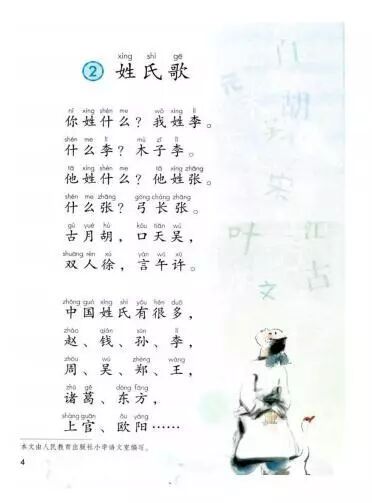 xìng shì gē
② 姓氏歌
nǐ xìng shén me wǒ xìng lǐ
你姓什么？我姓李。
shén me lǐ mù zǐ lǐ
什么李？木子李。
tā xìng shén me tā xìng zhāng
他姓什么？他姓张。
shén me zhāng gōng cháng zhāng
什么张？弓长张。
gǔ yuè hú kǒu tiān wú
古月胡，口天吴，
shuāng rén xú yán wǔ xǔ
双人徐，言午许。
zhōng guó xìng shì yǒu hěn duō
中国姓氏有很多，
zhào qián sūn lǐ
赵、钱、孙、李，
zhōu wú zhèng wáng
周、吴、郑、王，
zhū gě dōng fāng
诸葛、东方，
shàng guān ōu yáng
上官、欧阳……
本文由人民教育出版社小学语文室编写。
4
门
胡
吴
叶
汇
古
文